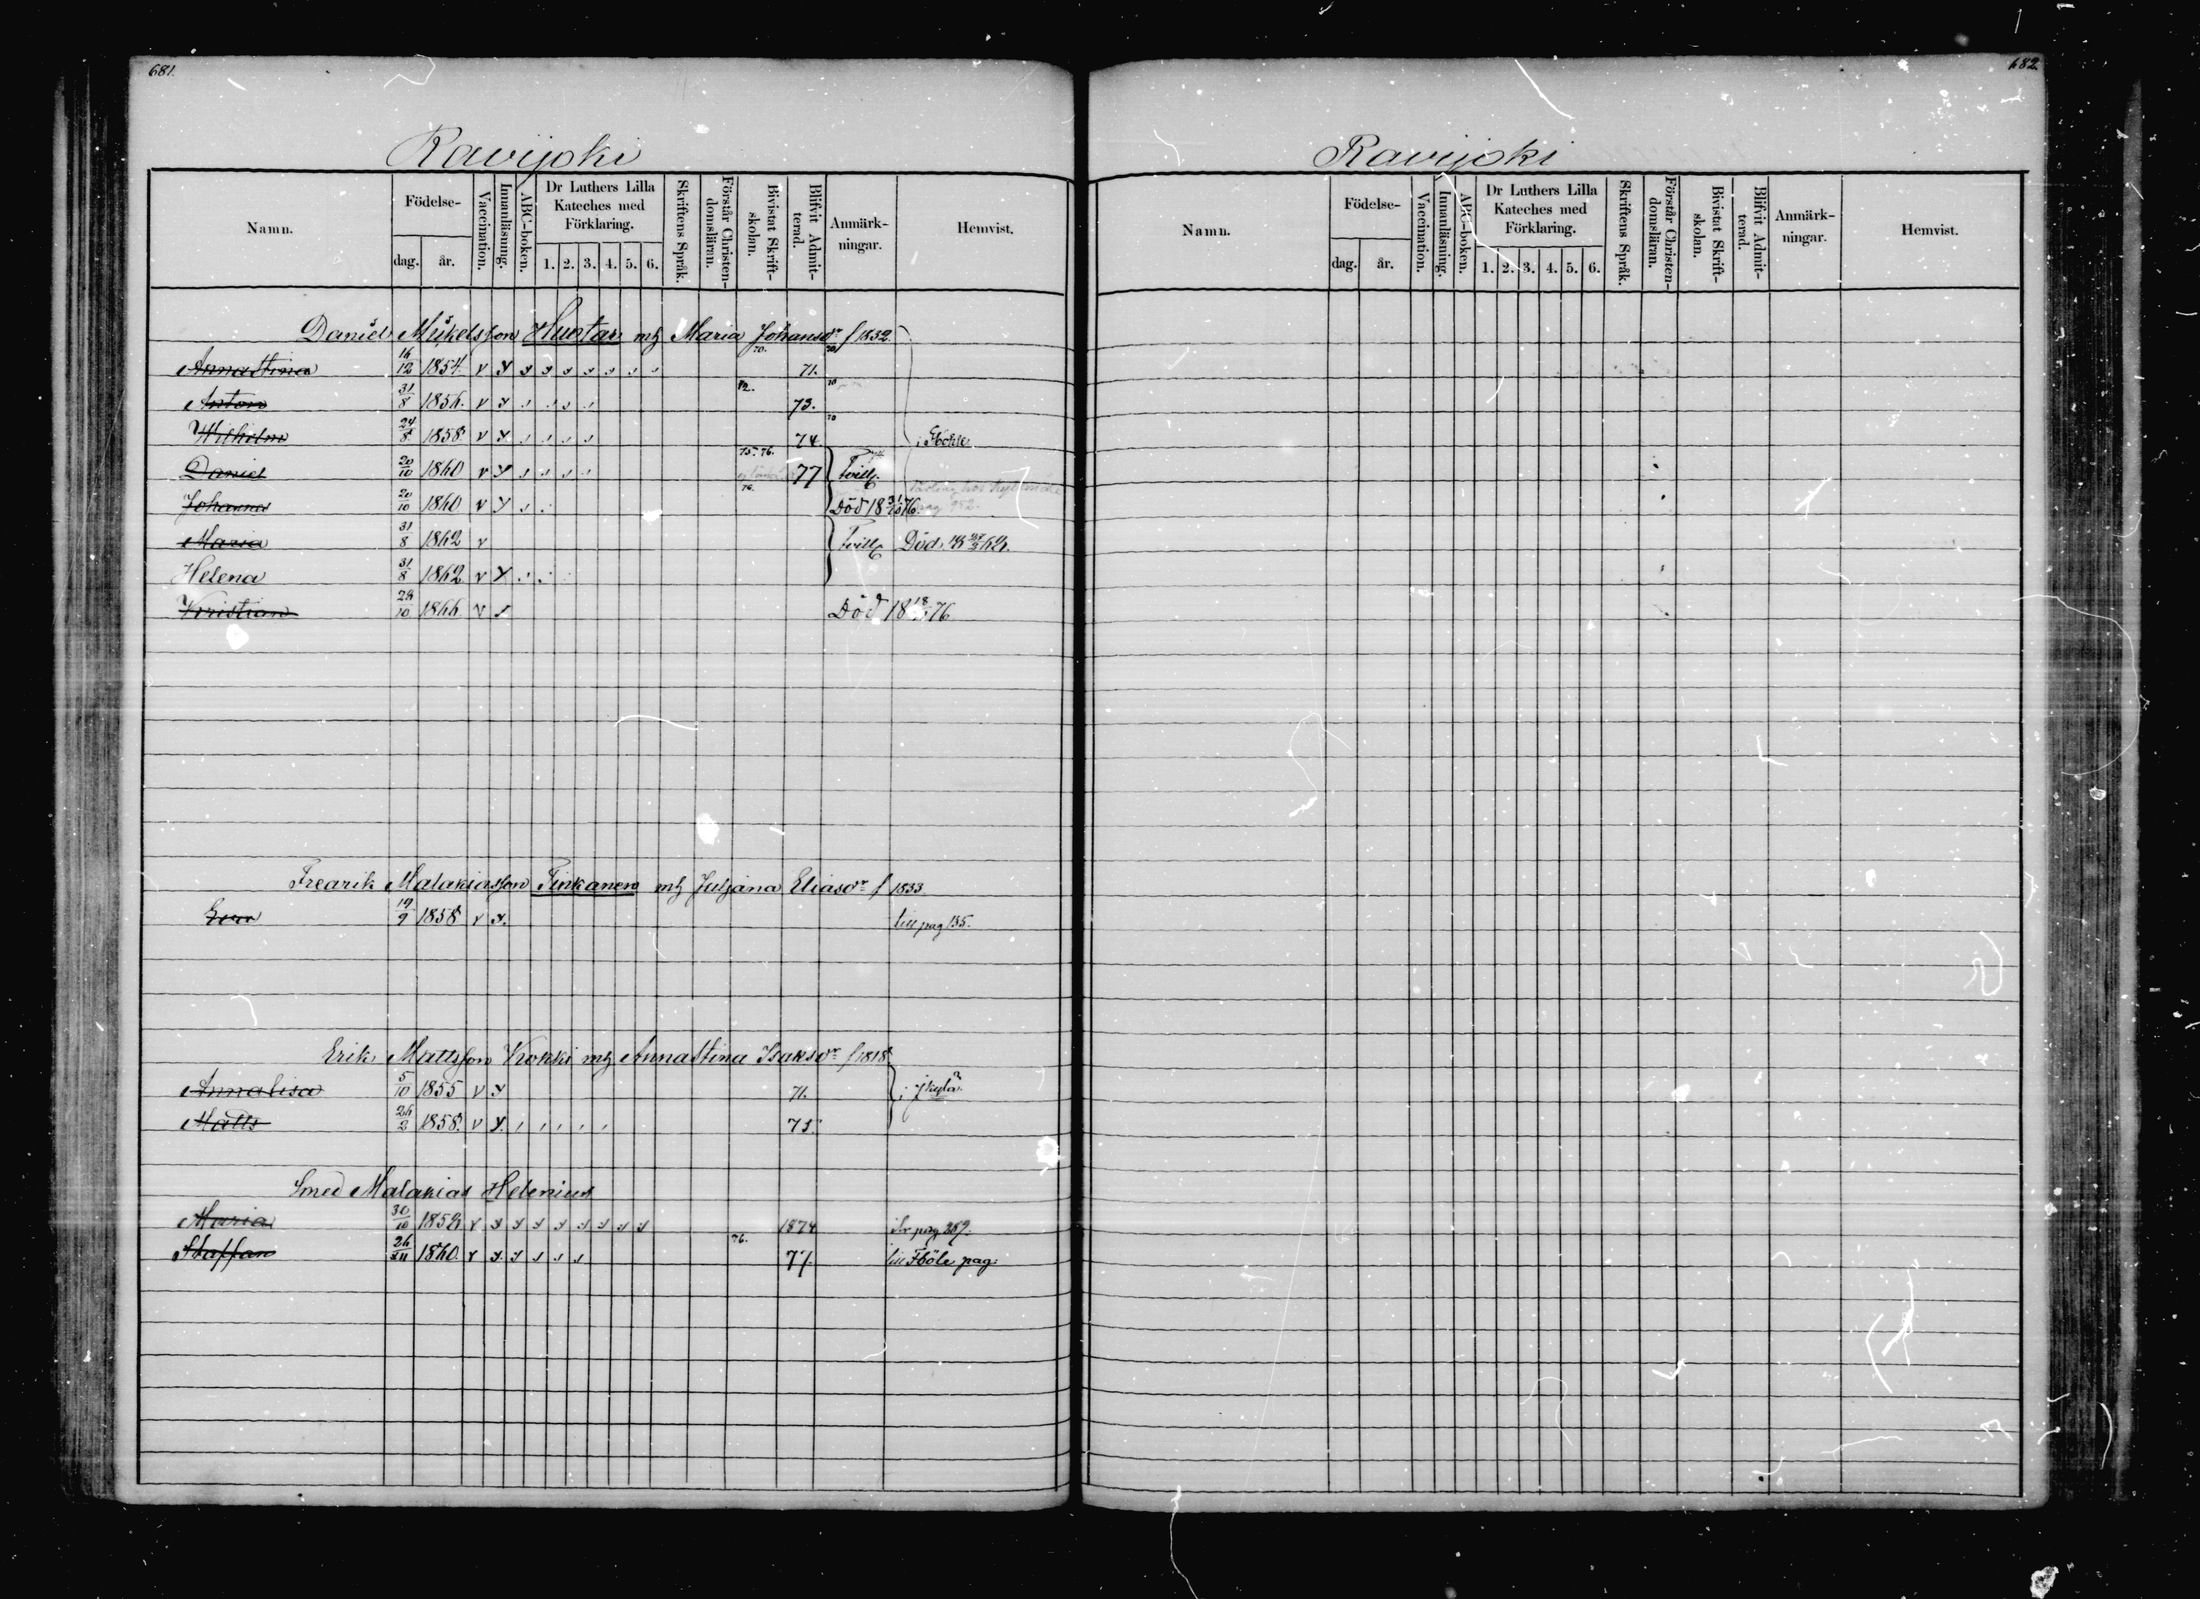 681.
Ravijoki
Namn.
Födelse-
dag.
år.
Vaccination.
Innanläsning.
ABC-boken.
Dr Luthers Lilla
Kateches med
Förklaring.
1. 2. 3. 4. 5. 6.
Skriftens Språk.
Förstår Christen-
domsläran.
Bivistat Skrift-
skolan.
Blifvit Admit-
terad.
Anmärk-
ningar.
Hemvist.
Daniel Mikelsson Huotar mh Maria Johansdr f 1832.
Annastina 16/12 1854. v 70. 71.
Anton 31/8 1856. v 72. 73. 70
Wilhelm 24/8 1858. v 74 70
Daniel 20/10 1860 v 75. 76. 77 Tvill.
Johannes 20/10 1860 v 76. Död 18 76.
Maria 31/8 1862 v Tvill. Död
Helena 31/8 1862 v
Kristian 28/10 1866 v Död 18 76.
Fredrik Malakiasson Tinkanen mh Juljana Eliasdr f 1833
Eva 19/9 1858 v till pag 135.
Erik Mattsson Kokki mh Annastina Isaksdr f 1818
Annalisa 5/10 1855 v 71.
Matts 26/2 1858. v 75.
Smed Malakias Helenius
Maria 30/10 1852 v 1874
Staffan 26/XII 1860. v 76. 77. till Fböle pag:
682.
Ravijoki
Namn.
Födelse-
dag.
år.
Vaccination.
Innanläsning.
ABC-boken.
Dr Luthers Lilla
Kateches med
Förklaring.
1. 2. 3. 4. 5. 6.
Skriftens Språk.
Förstår Christen-
domsläran.
Bivistat Skrift-
skolan.
Blifvit Admit-
terad.
Anmärk-
ningar.
Hemvist.